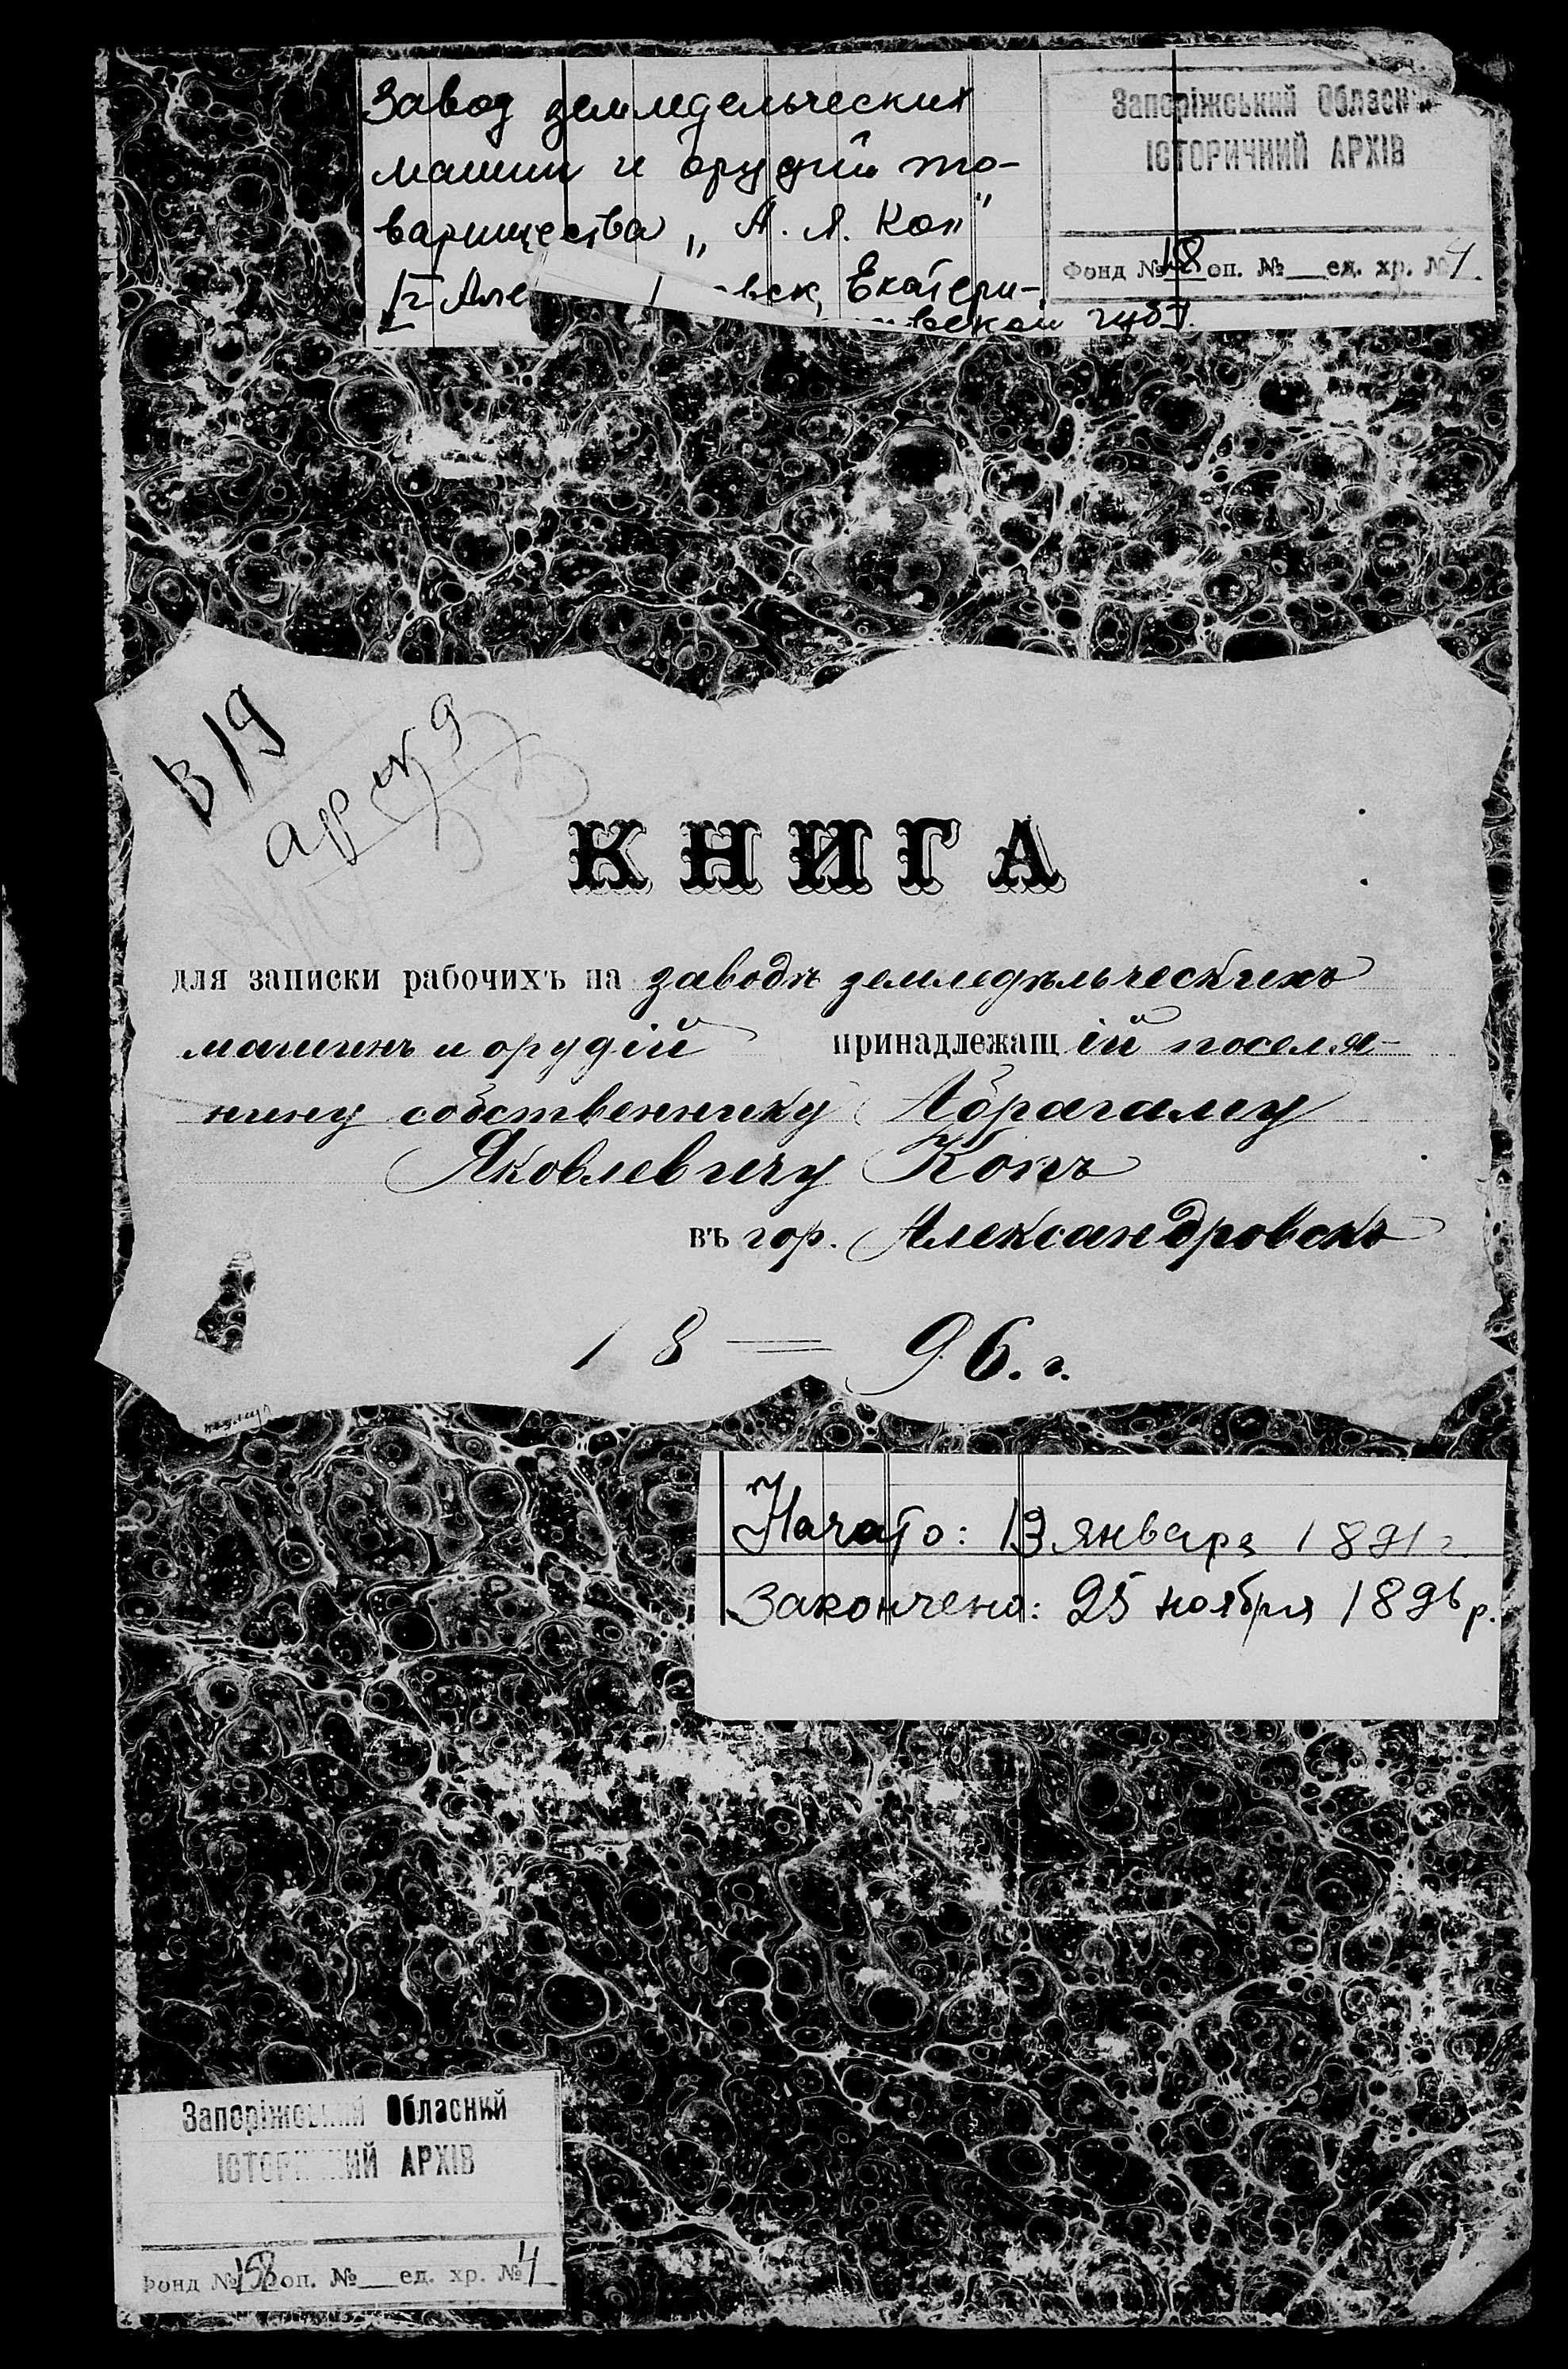 Завод земледельческих
машин и орудий то-
варищества „А. Я. Коп"
г. Але вск, Екатери-
вской губ.
Запоріжський Обласний
ІСТОРИЧНИЙ АРХІВ
Фонд № 158 оп. № __ ед. хр. № 4
В 19
КНИГА
для записки рабочихъ на заводѣ земледѣльческихъ
машинъ и орудій принадлежащій поселя-
нину собственнику Абрагаму
Яковлевичу Копъ
въ гор. Александровскѣ
18 — 96. г.
Начато: 13 января 1891 г.
Закончено: 25 ноября 1896 р.
Запоріжський Обласний
ІСТОРИЧНИЙ АРХІВ
Фонд № 158 оп. № __ ед. хр. № 4